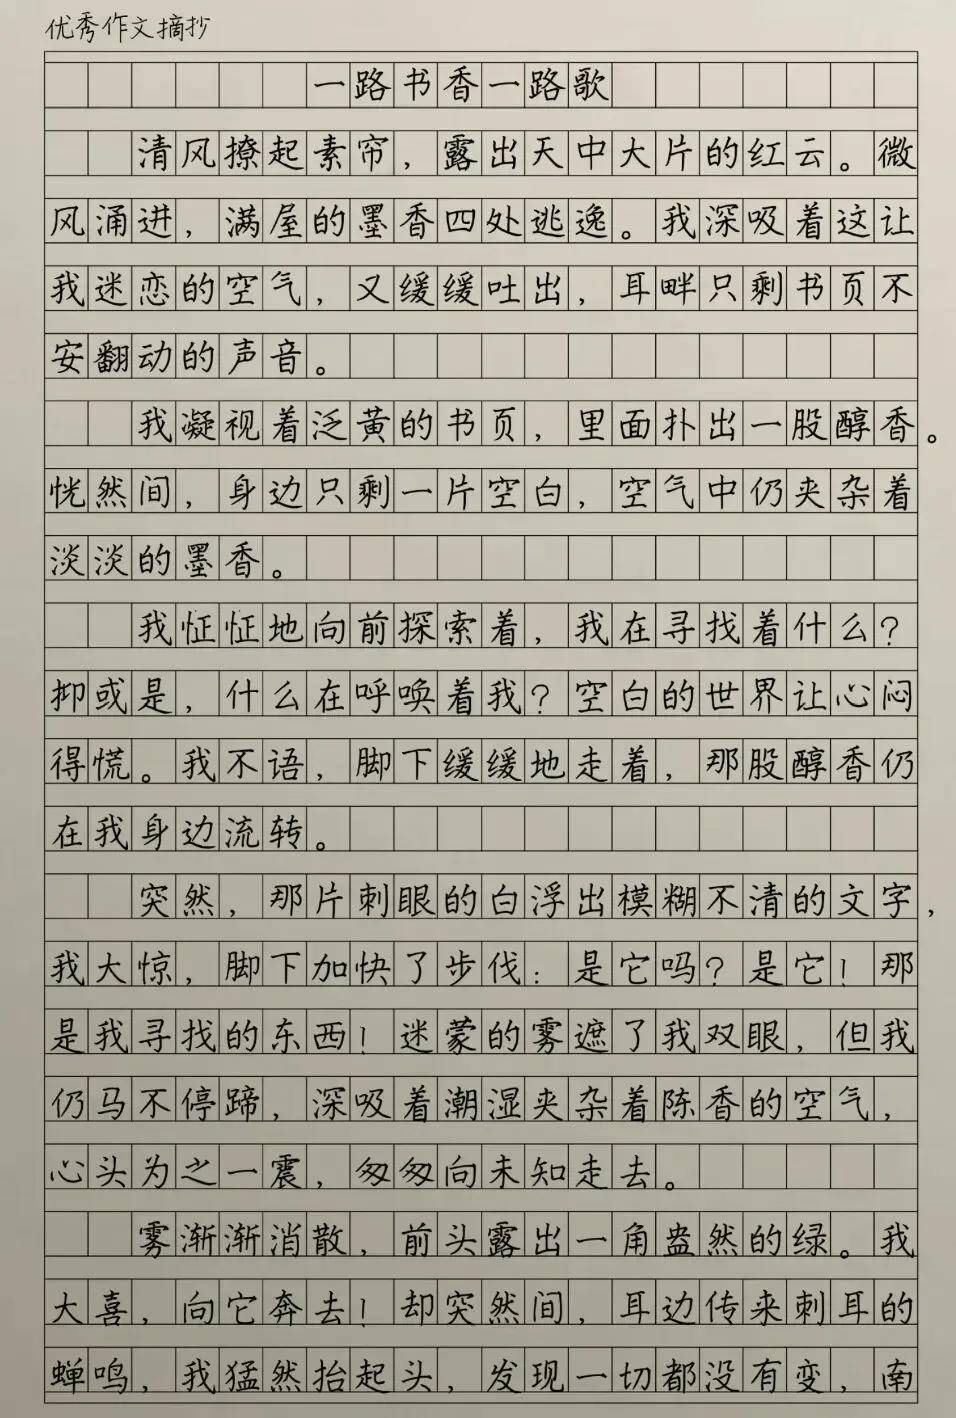 优秀作文摘抄
一路书香一路歌
清风撩起素帘，露出天中大片的红云。微
风涌进，满屋的墨香四处逃逸。我深吸着这让
我迷恋的空气，又缓缓吐出，耳畔只剩书页不
安翻动的声音。
我凝视着泛黄的书页，里面扑出一股醇香。
恍然间，身边只剩一片空白，空气中仍夹杂着
淡淡的墨香。
我怔怔地向前探索着，我在寻找着什么？
抑或是，什么在呼唤着我？空白的世界让心闷
得慌。我不语，脚下缓缓地走着，那股醇香仍
在我身边流转。
突然，那片刺眼的白浮出模糊不清的文字，
我大惊，脚下加快了步伐：是它吗？是它！那
是我寻找的东西！迷蒙的雾遮了我双眼，但我
仍马不停蹄，深吸着潮湿夹杂着陈香的空气，
心头为之一震，匆匆向未知走去。
雾渐渐消散，前头露出一角盎然的绿。我
大喜，向它奔去！却突然间，耳边传来刺耳的
蝉鸣，我猛然抬起头，发现一切都没有变，南